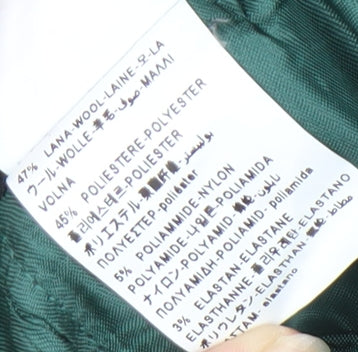 47% LANA-WOOL-LAINE-모-LA
ウール-WOLLE-羊毛-صوف-ΜΑΛΛΙ
VOLNA
45% POLIESTERE-POLYESTER
폴리에스테르-POLIESTER
ポリエステル-聚酯纤维-بوليستر
ΠΟΛΥΕΣΤΕΡ-poliéster
5% POLIAMMIDE-NYLON
POLYAMIDE-나일론-POLIAMIDA
ナイロン-POLYAMID-
ΠΟΛΥΑΜΙΔΗ-POLIAMID-poliamida
3% ELASTAN-ELASTANE
ELASTHANNE-폴리우레탄-ELASTANO
ポリウレタン-ELASTAN-
elastano